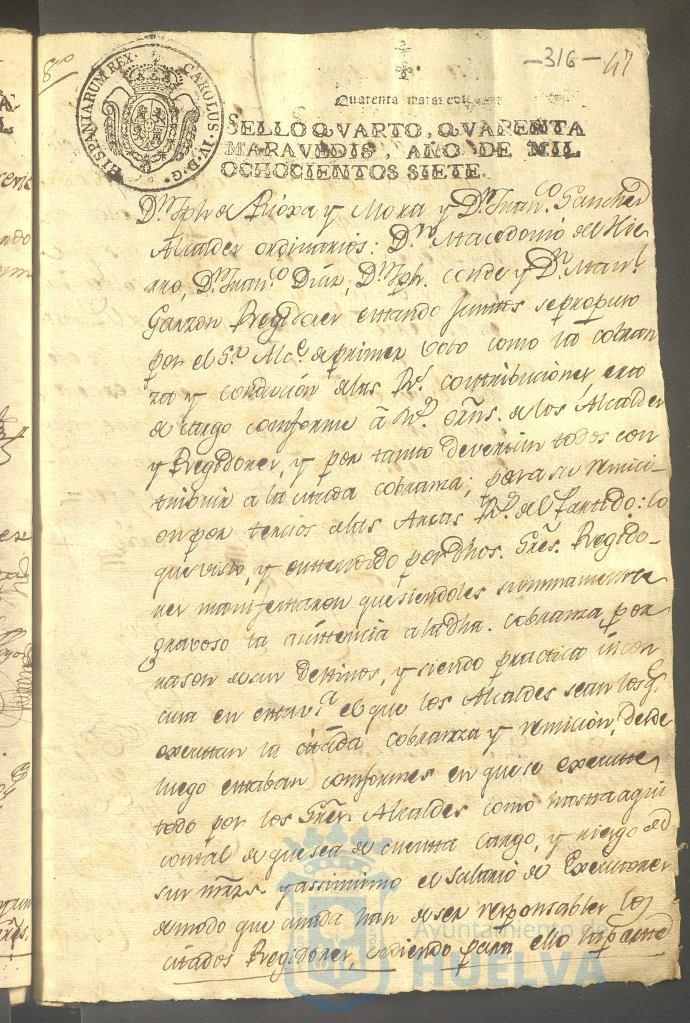 8no
-316- 47
HISPANIARUM REX. CAROLUS·IV·D·G·
Quarenta maravedis
SELLO QVARTO, QVARENTA
MARAVEDIS, AÑO DE MIL
OCHOCIENTOS SIETE.
Dn. Jph. de Rioxa y Mora y Dn. Franco. Sanchez
Alcaldes ordinarios: Dn. Macedonio del Hie
rro, Dn. Franco. Diaz, Dn. Jph. Conde y Dn. Manl.
Garzon Regidores estando juntos se propuso
por el Sr. Alce. de primer voto como la cobran
za y conducion de las Rs. contribuciones, era
de cargo conforme á Rs. Orns. de los Alcaldes
y Regidores, y por tanto deversen todos con
tribuir a la citada cobranza; para su remici-
on por tercios a las Arcas Rs. del Partido: lo
que visto, y entendido por dhos. Sres. Regido-
res manifestaron que siendoles summamente
gravoso la asistencia a la dha. cobranza por
rason de sus destinos, y siendo practica incon
cusa en esta va. el que los Alcaldes sean los q.
executan la citada cobranza y remicion, desde
luego estaban conformes en que se execute
todo por los Sres. Alcaldes como hasta aqui
con tal de que sea de cuenta cargo, y riesgo de
sus mrzs. y assimismo el salario de Executores
de modo que a nada han de ser responsables los
citados Regidores, cediendo para ello
Ayuntamiento de
HUELVA